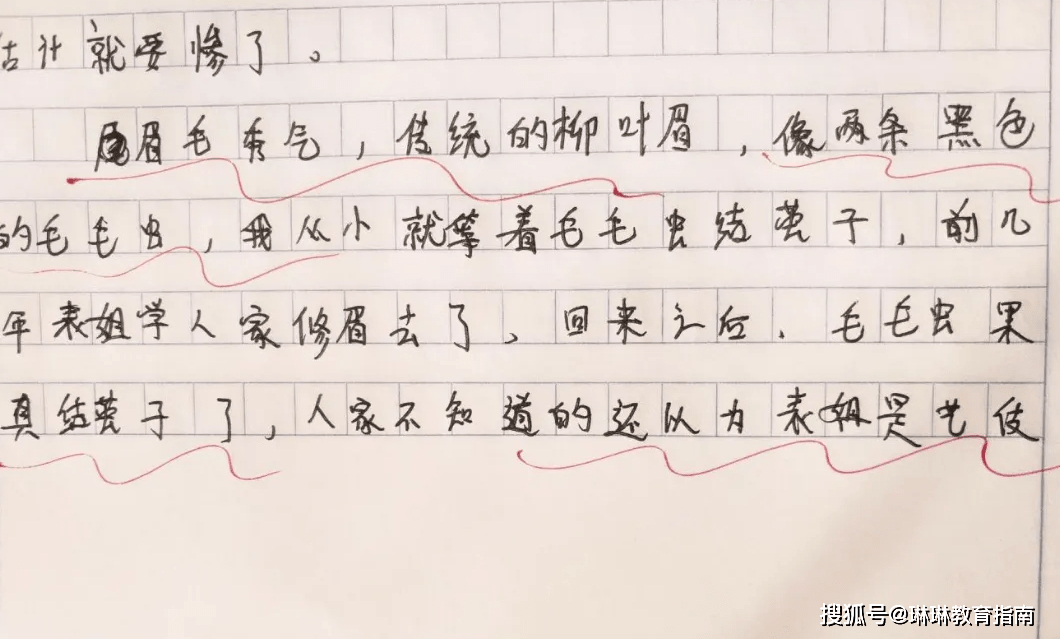 估计就要惨了。
眉毛秀气，传统的柳叶眉，像两条黑色
的毛毛虫，我从小就等着毛毛虫结茧子，前几
年表姐学人家修眉去了、回来之后．毛毛虫果
真结茧子了，人家不知道的还以为表姐是艺伎
搜狐号@琳琳教育指南